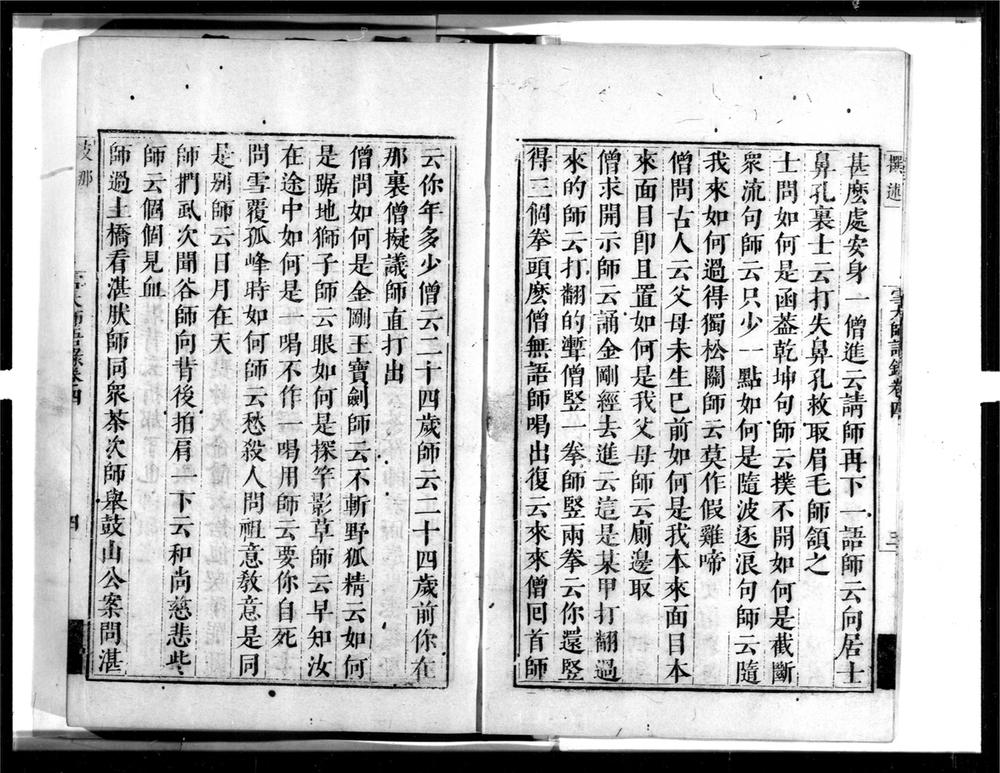 甚麽處安身一僧進云請師再下一語師云向居士
鼻孔裏士云打失鼻孔救取眉毛師頷之
士問如何是函葢乾坤句師云撲不開如何是截斷
衆流句師云只少一點如何是隨波逐浪句師云隨
我來如何過得獨松關師云莫作假雞啼
僧問古人云父母未生已前如何是我本來面目本
來面目卽且置如何是我父母師云廁邊取
僧求開示師云誦金剛經去進云這是某甲打翻過
來的師云打翻的聻僧竪一拳師竪兩拳云你還竪
得三個拳頭麽僧無語師喝出復云來來僧回首師
云你年多少僧云二十四歲師云二十四歲前你在
那裏僧擬議師直打出
僧問如何是金剛王寶劍師云不斬野狐精云如何
是踞地獅子師云眼如何是探竿影草師云早知汝
在途中如何是一喝不作一喝用師云要你自死
問雪覆孤峰時如何師云愁殺人問祖意敎意是同
是别師云日月在天
師捫虱次聞谷師向背後拍肩一下云和尚慈悲些
師云個個見血
師過土橋看湛肰師同衆茶次師舉鼓山公案問湛
支那
四